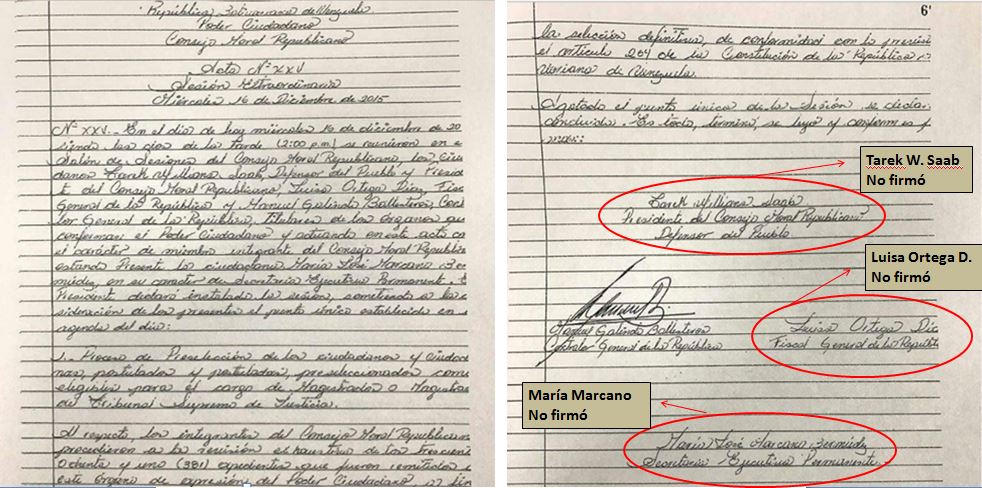 República Bolivariana de Venezuela
Poder Ciudadano
Consejo Moral Republicano
Acta Nº XXV
Sesión Extraordinaria
Miércoles 16 de Diciembre de 2015
Nº XXV.- En el día de hoy miércoles 16 de diciembre de 20
siendo las dos de la tarde (2:00 p.m) se reunieron en e
Salón de Sesiones del Consejo Moral Republicano, los ciu
danos Tarek William Saab, Defensor del Pueblo y Presid
t del Consejo Moral Republicano, Luisa Ortega Díaz, Fisc
General de la República y Manuel Galindo Ballesteros, Con
lor General de la República, Titulares de los Órganos que
conforman el Poder Ciudadano y actuando en este acto co
el carácter de miembro integrante del Consejo Moral Republic
estando Presente la ciudadana María José Marcano Ber
múdez, en su carácter de Secretaria Ejecutiva Permanente. E
President declaró instalada la sesión, sometiendo a la c
sideración de los presentes el punto único establecido en
agenda del día:
1.- Proceso de Preselección de los ciudadanos y ciudad
nas, postulados y postuladas, preseleccionados como
elegibles para el cargo de Magistrado o Magistrad
del Tribunal Supremo de Justicia.
Al respecto, los integrantes del Consejo Moral Republicano
procedieron a la revisión exhaustiva de los trescient
ochenta y uno (381) expedientes que fueron remitidos
este órgano de expresión del Poder Ciudadano,
6'
la selección definitiva, de conformidad con lo previs
el artículo 264 de la Constitución de la República
variana de Venezuela.
Agotado el punto único de la Sesión, se declar
concluida. Es todo, terminó, se leyó y conformes f
Tarek W. Saab
No firmó
Tarek William Saab
Presidente del Consejo Moral Republicano
Defensor del Pueblo
Luisa Ortega D.
No firmó
Manuel Galindo Ballesteros
Contralor General de la República
Luisa Ortega Día
Fiscal General de la Repúbli
María Marcano
No firmó
María José Marcano Bermúdez
Secretaria Ejecutiva Permanente